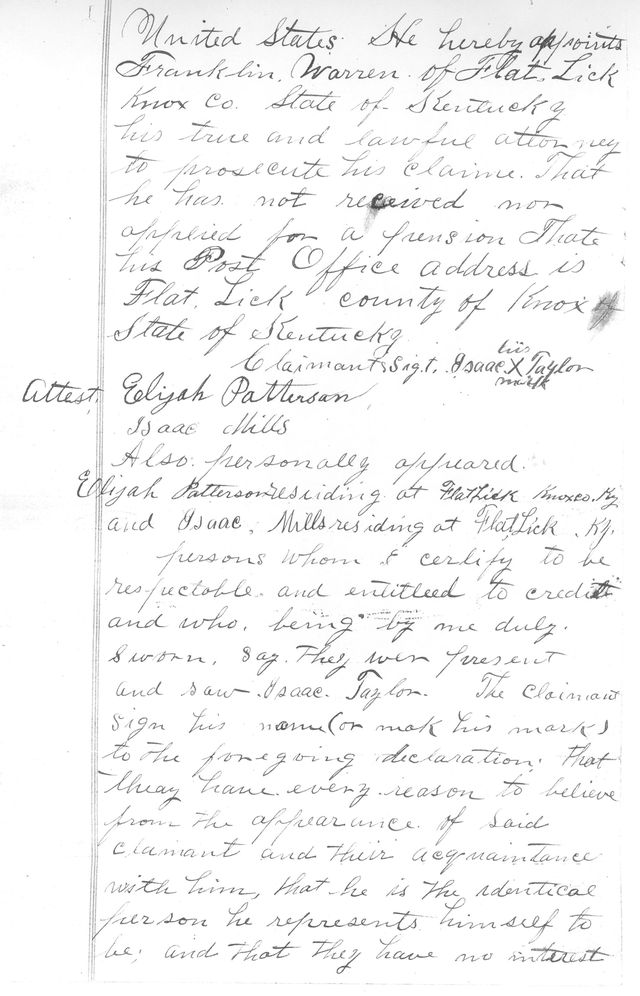 United States. He hereby appoints
Franklin, Warren. of Flat. Lick
Knox Co. State of Kentucky
his true and lawful attorney
to prosecute his claime. That
he has not received nor
applied for a pension Thate
his Post Office address is
Flat. Lick county of Knox
State of Kentucky
Claimants Sigt. Isaac his X mark Taylor
Attest. Elijah Patterson
Isaac Mills
Also personally appeared.
Elijah Patterson residing at Flat Lick Knox co. Ky
and Isaac, Mills residing at Flat Lick, Ky.
persons whom I certify to be
respectable. and entitleed to credit
and who. being by me duly.
Sworn, Say. They wer present
and saw. Isaac. Taylor. The Claimant
Sign his name (or mak his mark)
to the foregoing declaration; that
theay have every reason to believe
from the appearance of Said
Clamant and their acquaintance
with him, that he is the identical
person he represents himself to
be; and that they have no interest